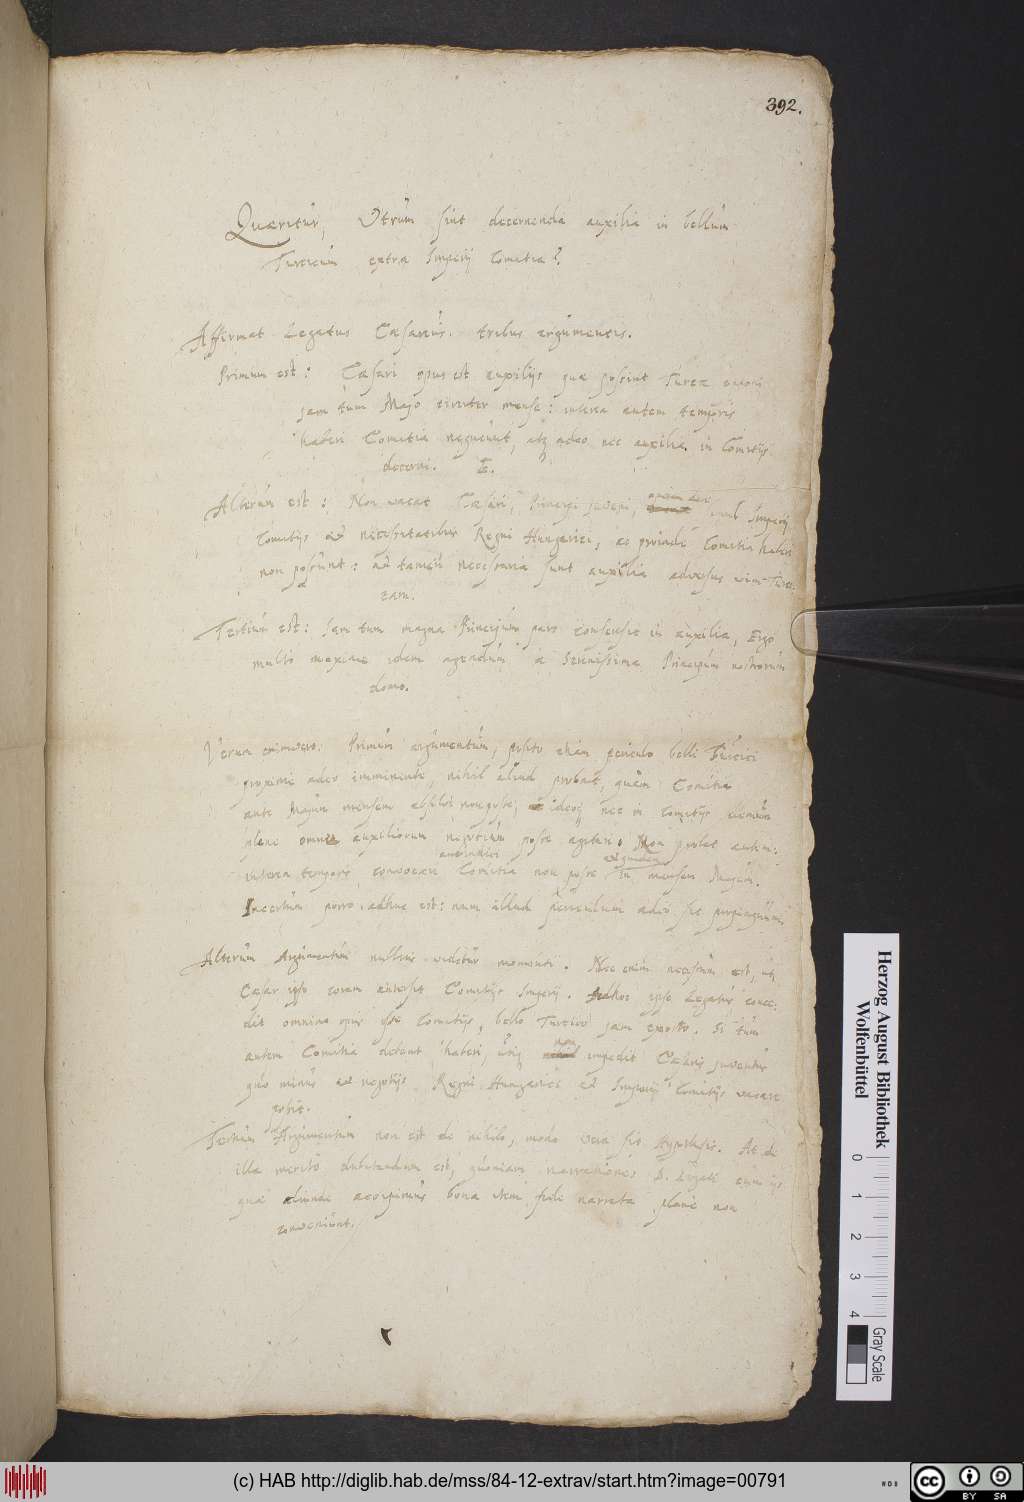 392.
Quæritur, Utrùm sint decernenda auxilia in bellum
Turcicum extra Imperij Comitia?
Affirmat Legatus Cæsareus tribus argumentis.
Primum est: Cæsari opus est auxilijs quæ possint Turcæ
jam tum Majo mense: interea autem temporis
haberi Comitia nequeunt, atq adeo nec auxilia in Comitijs
decerni. E.
Alterum est: Non vacat Cæsari, Principi juveni, simul Imperij
Comitijs et necessitatibus Regni Hungarici, ac proinde Comitia haberi
non possunt: at tamen necessaria sunt auxilia adversus vim Turci-
cam.
Tertium est: Jam tum magna Principum pars consensit in auxilia, Ergo
multò maxime idem agendum à Serenissima Principum nostrorum
domo.
Verum enimvero. Primum argumentum, posito etiam periculo belli Turcici
proximè adeo imminente, nihil aliud probat, quàm Comitia
ante Majum mensem absolvi non posse, ideoq nec in Comitijs
plene omne auxiliorum negotium posse agitari. Non probat autem:
interea temporis, convocari Comitia non posse in mensem Majum.
Incertum porro adhuc est: num illud periculum adeo sit
Alterum Argumentum nullius videtur momenti. Nec enim necessum est, ut
Cæsar ipse coram intersit Comitijs Imperij. ipse Legatus conce-
dit omnino opus esse Comitijs, bello Turcico jam exorto. Si tum
autem Comitia debent haberi, impedit Cæsaris juventus
quo minus et negotijs Regni Hungarici et Imperij Comitijs vacare
possit.
Tertium Argumentum non est de nihilo, modo vera sit hypothesis. At de
illa meritò dubitandum est, quoniam narrationes D. Legati cum ijs
quæ aliunde accepimus bona item fide narrata planè non
conveniunt.
Herzog August Bibliothek
Wolfenbüttel
0 1 2 3 4
Gray Scale
(c) HAB http://diglib.hab.de/mss/84-12-extrav/start.htm?image=00791
cc BY SA